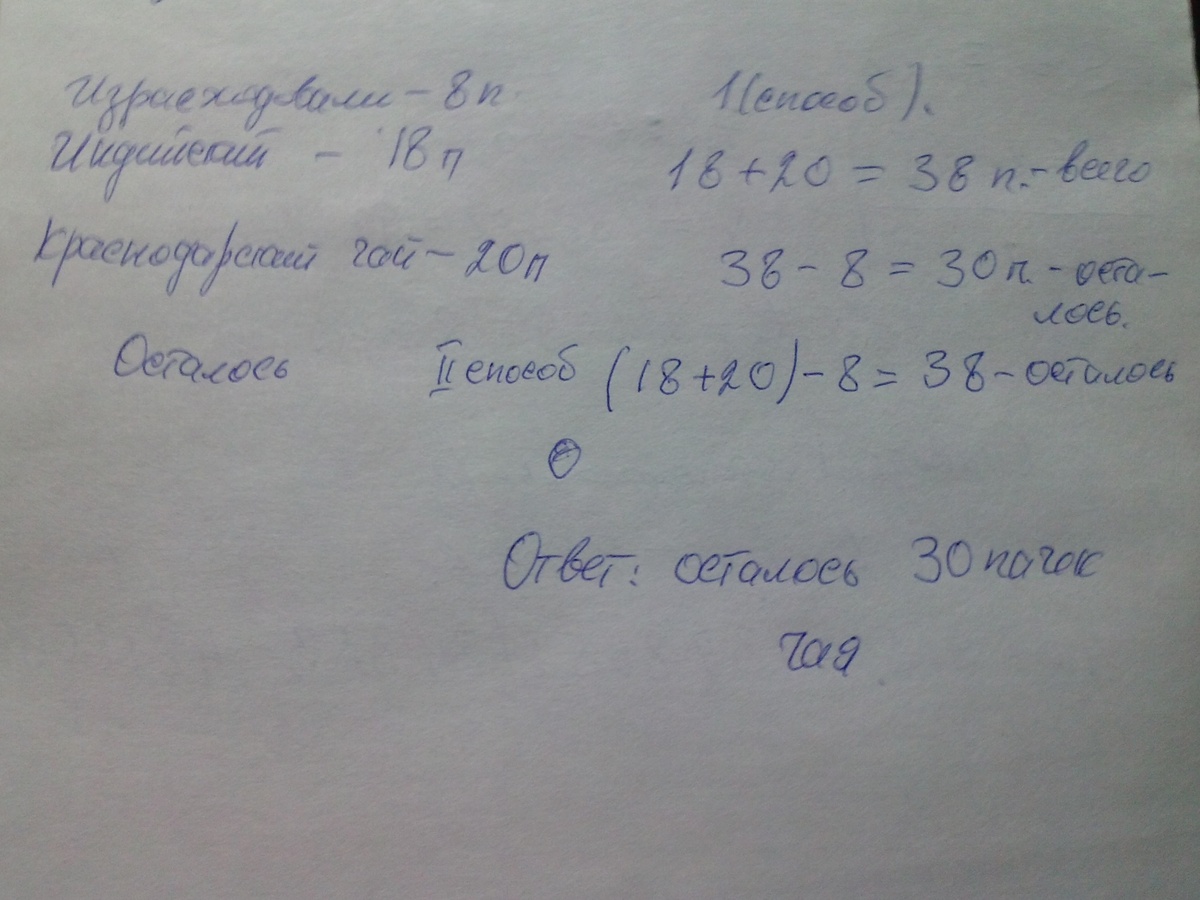 Израсходвали - 8 п.
Индийский - 18 п
Краснодарский чай - 20 п
Осталось
1(способ).
18 + 20 = 38 п. - всего
38 - 8 = 30 п. - оста-
лось.
II способ (18 + 20) - 8 = 38 - осталось
Ответ: осталось 30 пачок
чая